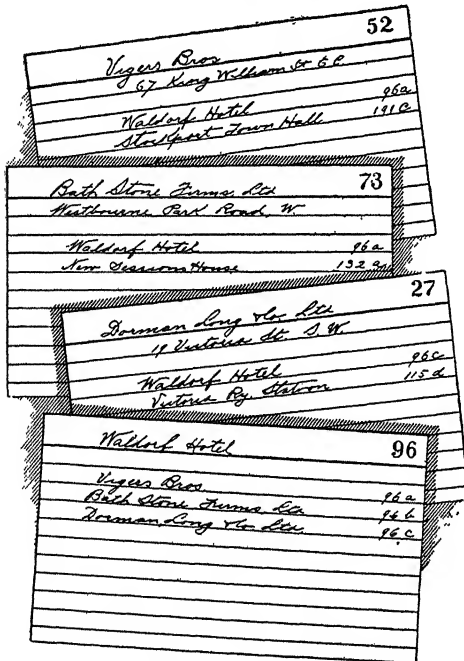 52
Vigers Bros
67 King William St E C
Waldorf Hotel 96a
Stockport Town Hall 191c
73
Bath Stone Firms, Ltd
Westbourne Park Road, W.
Waldorf Hotel 96a
New Sessions House 132a
27
Dorman Long & Co Ltd
19 Victoria St. S.W.
Waldorf Hotel 96c
Victoria Ry Station 115d
96
Waldorf Hotel
Vigers Bros 96a
Bath Stone Firms Ltd 96b
Dorman Long & Co Ltd. 96c